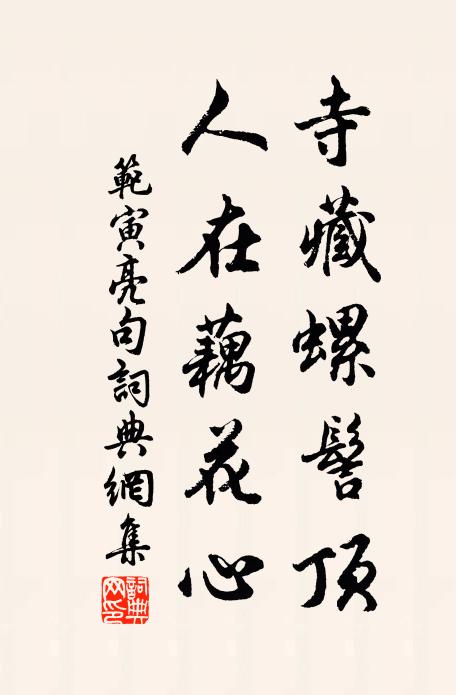 寺藏螺髻頂
人在藕花心
範寅亮句詞典網集
詞典網印